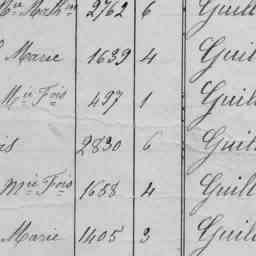 2762 6 Guill
Marie 1639 4 Guil
Mie Fois 497 1 Guill
is 2830 6 Guill
Mie Fois 1658 4 Guill
Marie 1405 3 Guill